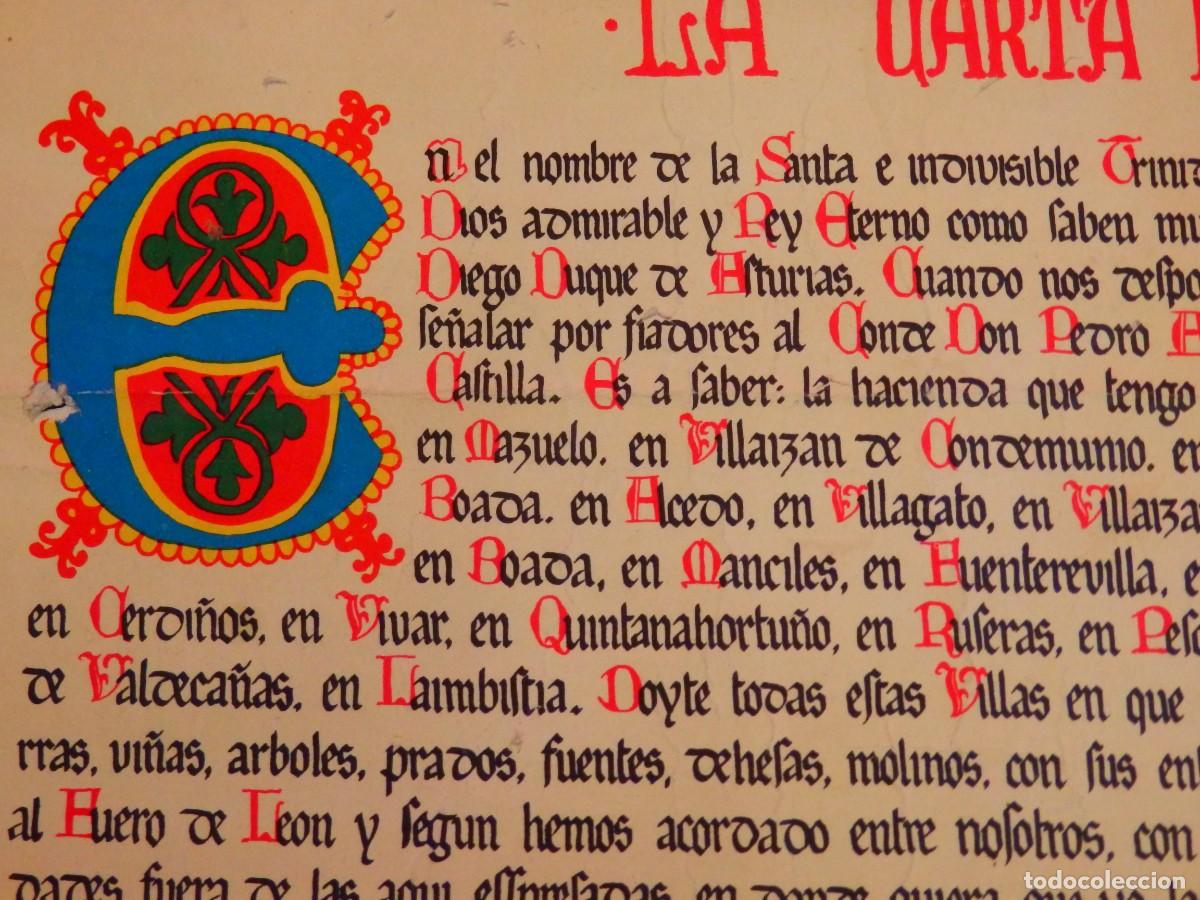 ·LA CARTA
En el nombre de la Santa e indivisible Trinid
Dios admirable y Rey Eterno como saben mu
Diego Duque de Asturias. Cuando nos despo
señalar por fiadores al Conde Don Pedro A
Castilla. Es a saber: la hacienda que tengo
en Mazuelo. en Villaizan de Condemumo. en
Boada. en Alcedo, en Villagato, en Villaiza
en Boada, en Manciles, en Fuenterevilla, e
en Cerdiños, en Vivar, en Quintanahortuño, en Ruseras, en Pesq
de Valdecañas, en Laimbistia. Doyte todas estas Villas en que
rras, viñas, arboles, prados, fuentes, dehesas, molinos, con sus en
al Fuero de Leon y segun hemos acordado entre nosotros, con
dades fuera de las aqui espresadas, en donde quiera que
todocoleccion